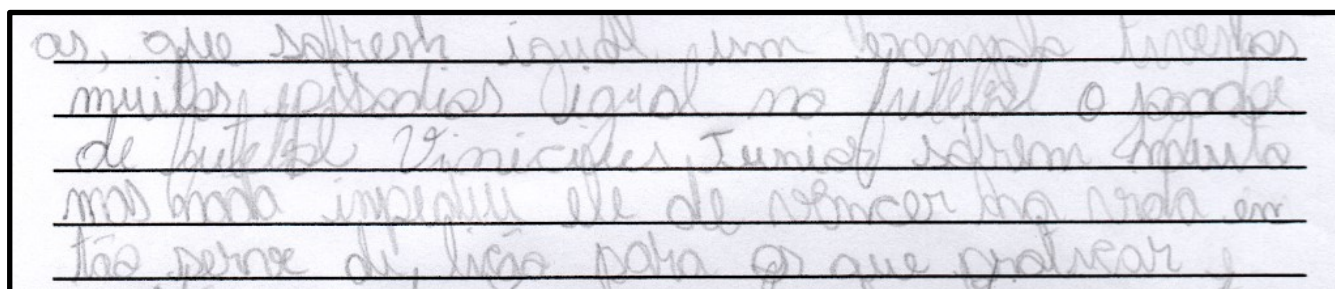 as, que sofrem igual um exemplo tivemos
muitos episodios igual no futebol o jogador
de futebol Vinicius Junior sofrem muito
mas nada impediu ele de vencer na vida en
tão serve de lição para os que praticar e